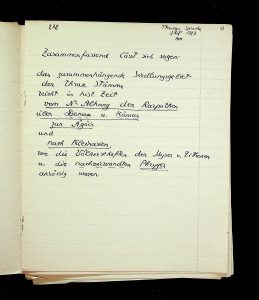 272
Zusammenfassend lässt sich sagen:
das zusammenhängende Siedlungsgebiet
der Thrak. Stämme
reicht in hist. Zeit
vom N-Abhang der Karpathen
über Donau u. Hämus
zur Ägäis
und
nach Kleinasien,
wo die Völkerschaften der Myser u. Bithyner
u. die nachverwandten Phryger
ansässig waren.